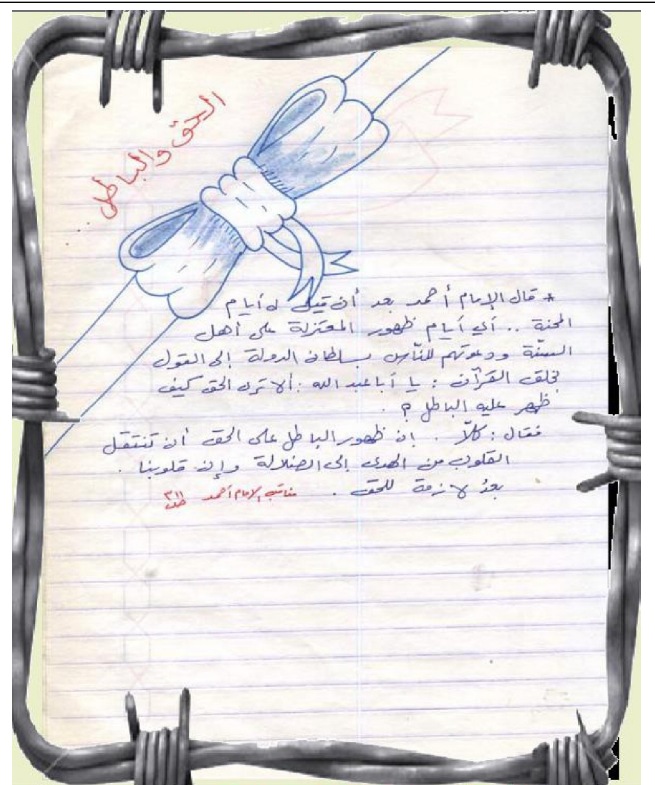 الحق والباطل ..
* قال الإمام أحمد بعد أن قيل له أيام
المحنة .. أي أيام ظهور المعتزلة على أهل
السنّة ودعوتهم للنّاس بسلطان الدولة إلى القول
بخلق القرآن : يا أبا عبد الله : ألا ترى الحق كيف
ظهر عليه الباطل ؟ .
فقال : كلاّ . إن ظهور الباطل على الحق أن تنتقل
القلوب من الهدى إلى الضلالة وإن قلوبنا .
بعدُ لازمة للحق . مناقب الإمام أحمد ص٣١١